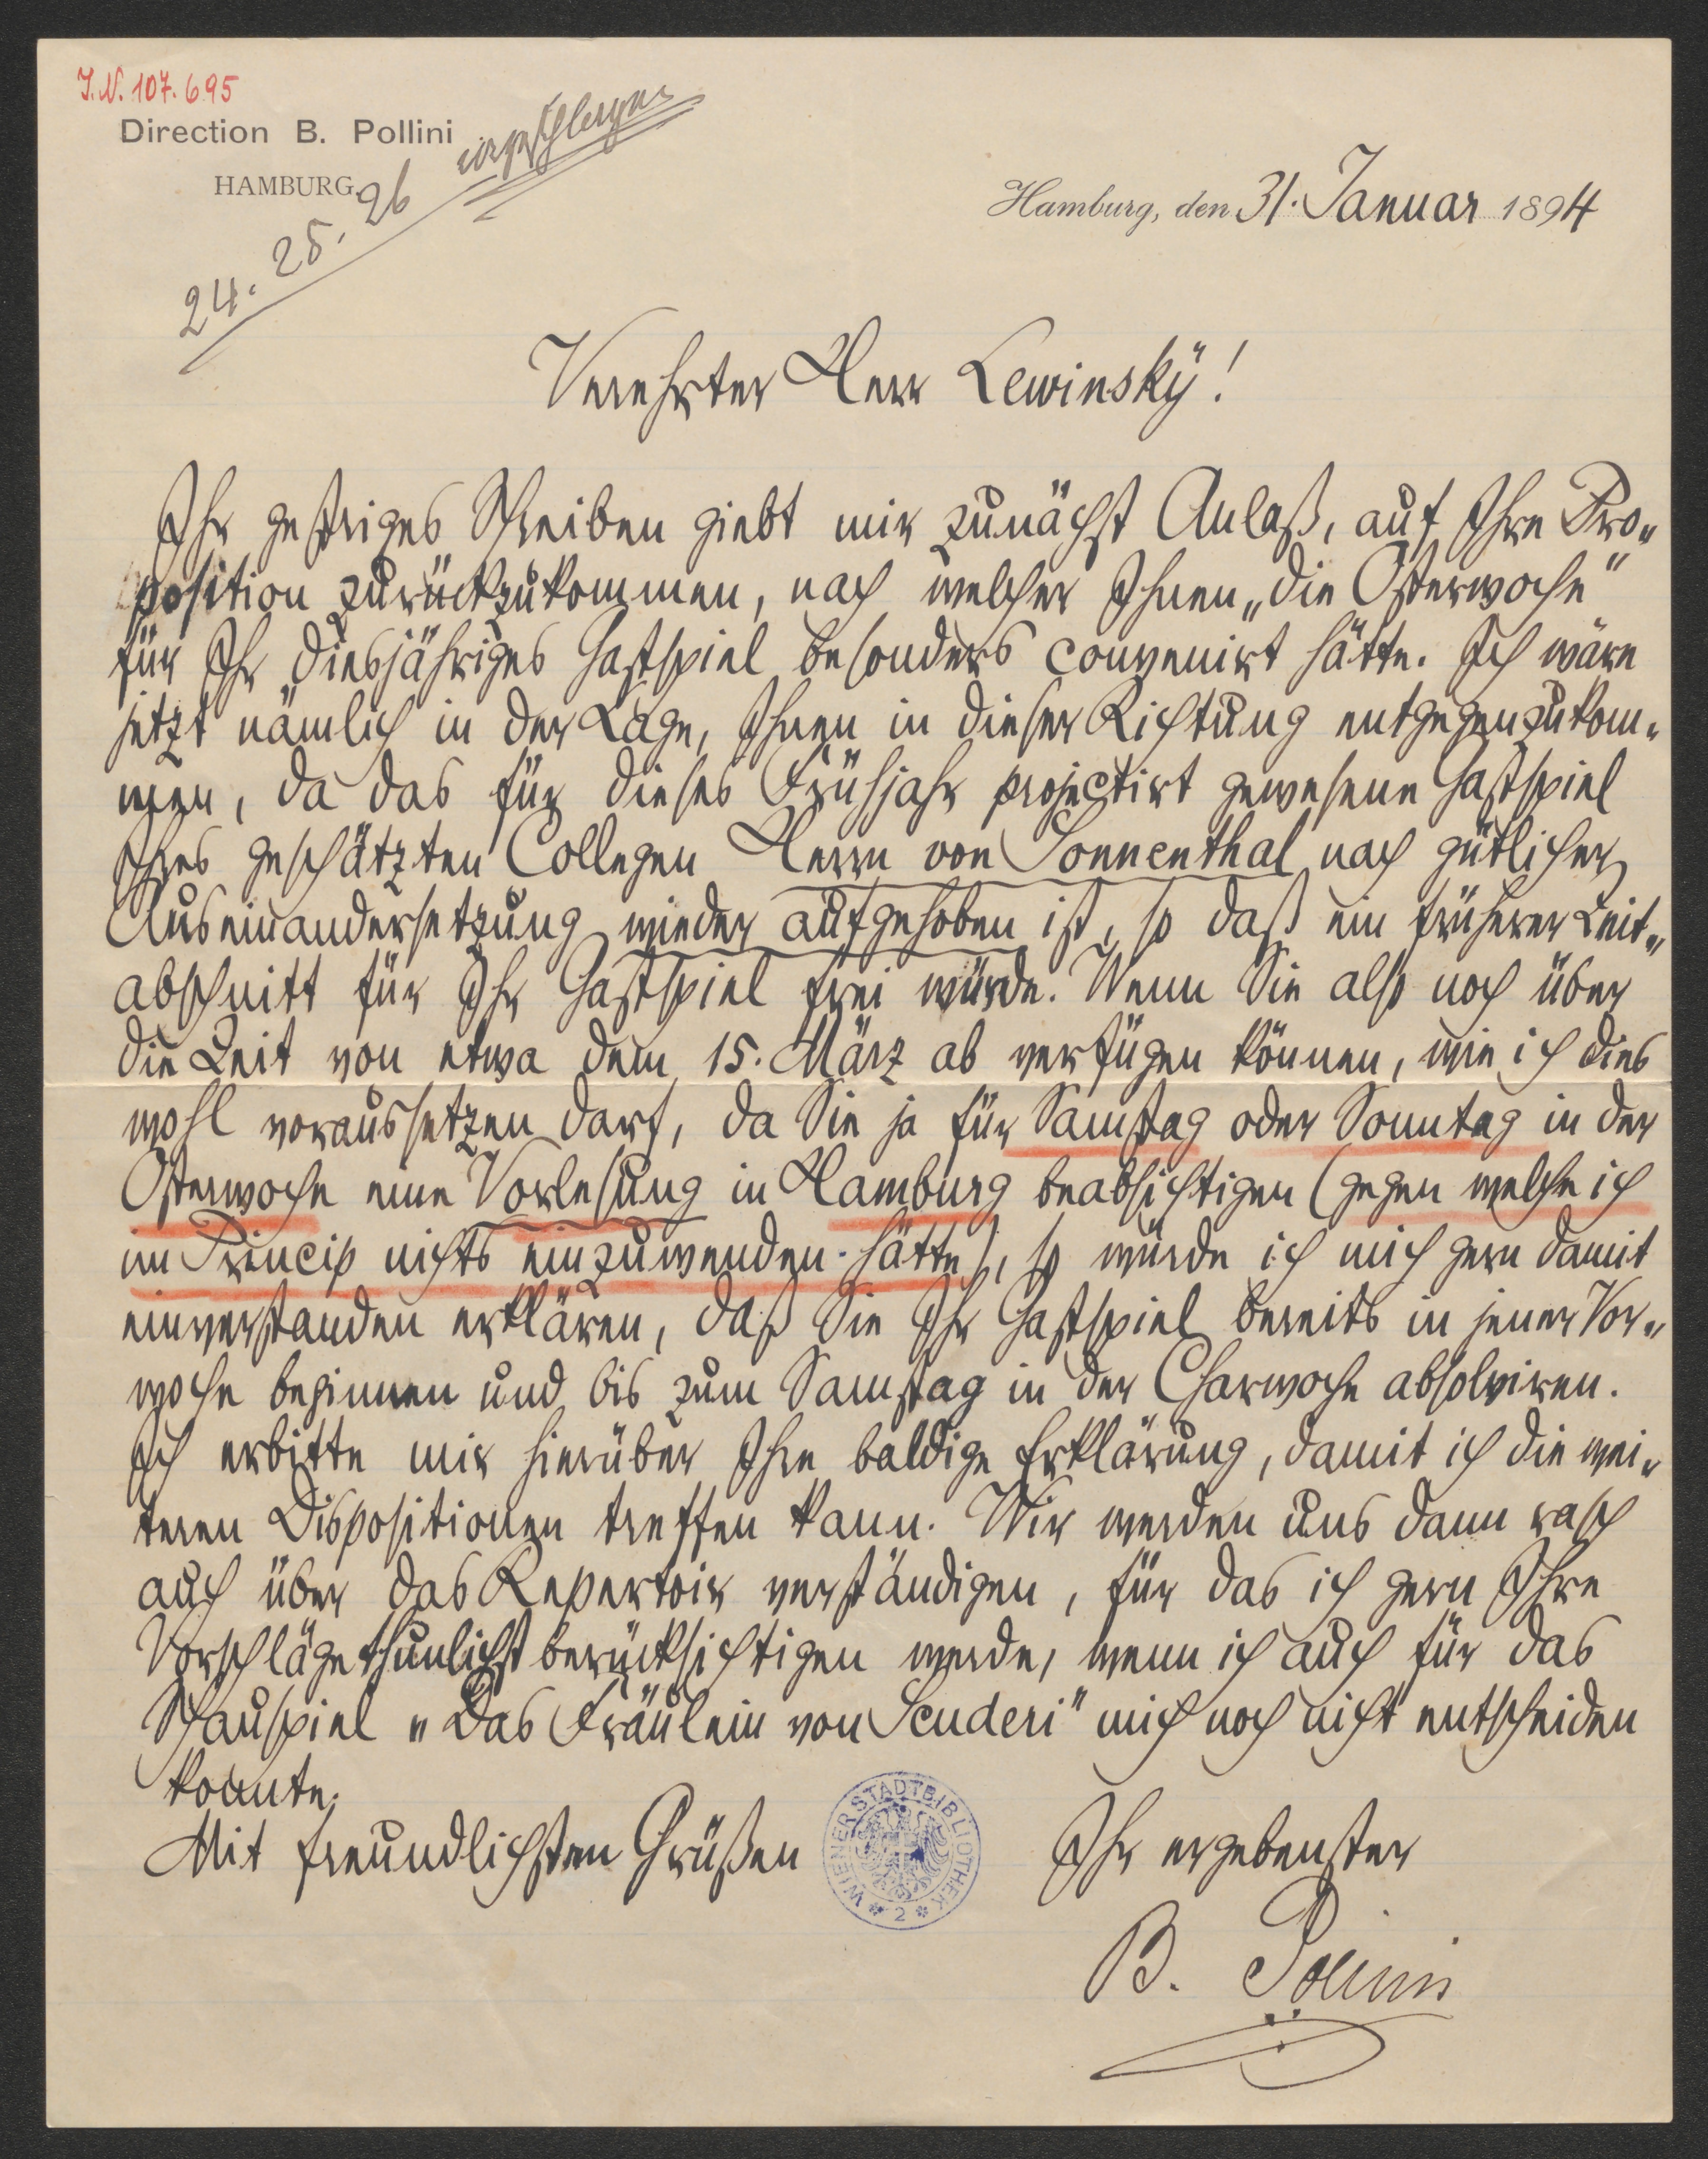 I.N. 107.695
Direction B. Pollini
HAMBURG.
24. 25. 26
Hamburg, den 31. Januar 1894
Verehrter Herr Lewinský!
Ihr gestriges Schreiben giebt mir zunächst Anlaß, auf Ihre Pro„
position zurückzukommen, nach welcher Ihnen „die Osterwoche“
für Ihr diesjähriges Gastspiel besonders convenirt hätte. Ich wäre
jetzt nämlich in der Lage, Ihnen in dieser Richtung entgegenzukom„
men, da das für dieses Frühjahr projectirt gewesene Gastspiel
Ihres geschätzten Collegen Herrn von Sonnenthal nach gütlicher
Auseinandersetzung wieder aufgehoben ist, so daß ein früherer Zeit„
abschnitt für Ihr Gastspiel frei würde. Wenn Sie also noch über
die Zeit von etwa dem 15. März ab verfügen können, wie ich dies
wohl voraussetzen darf, da Sie ja für Samstag oder Sonntag in der
Osterwoche eine Vorlesung in Hamburg beabsichtigen (gegen welche ich
im Princip nichts einzuwenden hätte), so würde ich mich gern damit
einverstanden erklären, daß Sie Ihr Gastspiel bereits in jener Vor„
woche beginnen und bis zum Samstag in der Charwoche absolviren.
Ich erbitte mir hierüber Ihre baldige Erklärung, damit ich die wei„
teren Dispositionen treffen kann. Wir werden uns dann rasch
auch über das Repertoir verständigen, für das ich gern Ihre
Vorschläge thunlichst berücksichtigen werde, wenn ich auch für das
Schauspiel „Das Fräulein von Scuderi“ mich noch nicht entscheiden
konnte.
Mit freundlichsten Grüßen
WIENER STADTBIBLIOTHEK
* 2 *
Ihr ergebenster
B. Pollini